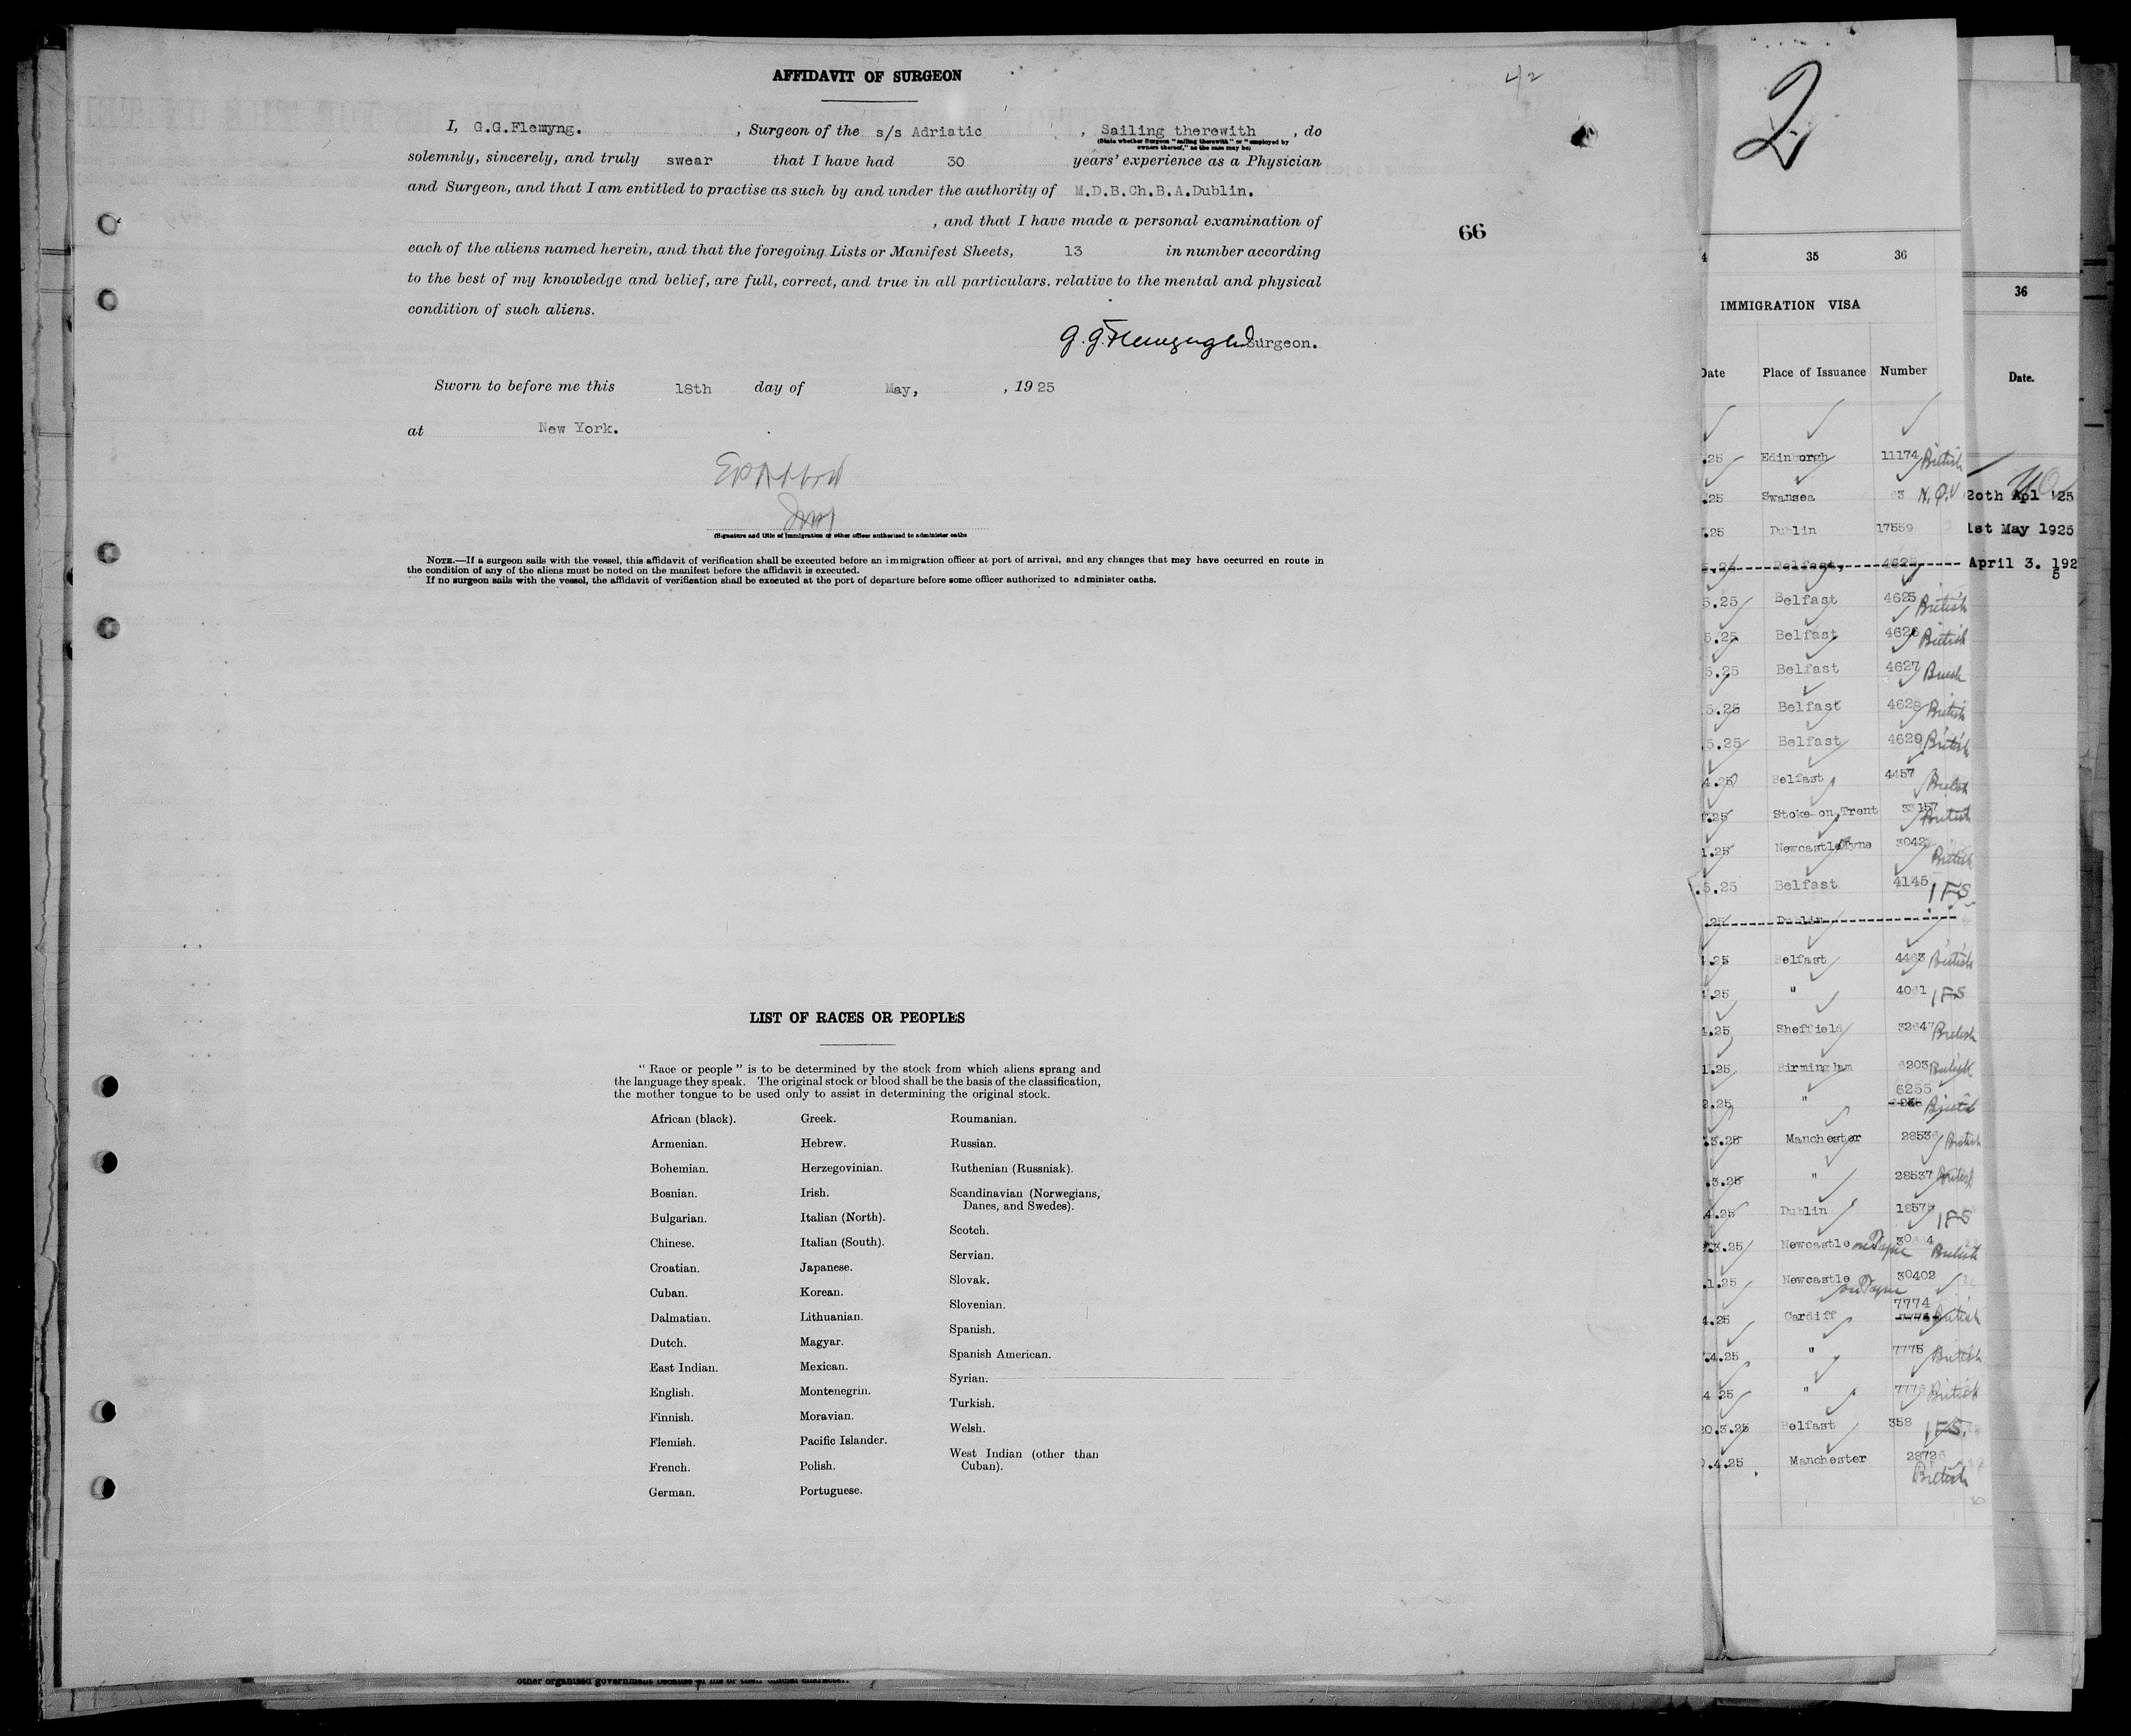 AFFIDAVIT OF SURGEON
I, G.G.Flemyng. , Surgeon of the s/s Adriatic , Sailing therewith , do
(State whether Surgeon "sailing therewith" or "employed by
owners thereof," as the case may be)
solemnly, sincerely, and truly swear that I have had 30 years' experience as a Physician
and Surgeon, and that I am entitled to practise as such by and under the authority of M.D.B.Ch.B.A.Dublin.
, and that I have made a personal examination of
each of the aliens named herein, and that the foregoing Lists or Manifest Sheets, 13 in number according
to the best of my knowledge and belief, are full, correct, and true in all particulars. relative to the mental and physical
condition of such aliens.
Surgeon.
Sworn to before me this 18th day of May, , 1925
at New York.
(Signature and title of immigration or other officer authorized to administer oaths
NOTE.—If a surgeon sails with the vessel, this affidavit of verification shall be executed before an immigration officer at port of arrival, and any changes that may have occurred en route in
the condition of any of the aliens must be noted on the manifest before the affidavit is executed.
If no surgeon sails with the vessel, the affidavit of verification shall be executed at the port of departure before some officer authorized to administer oaths.
66
LIST OF RACES OR PEOPLES
"Race or people" is to be determined by the stock from which aliens sprang and
the language they speak. The original stock or blood shall be the basis of the classification,
the mother tongue to be used only to assist in determining the original stock.
African (black).
Armenian.
Bohemian.
Bosnian.
Bulgarian.
Chinese.
Croatian.
Cuban.
Dalmatian.
Dutch.
East Indian.
English.
Finnish.
Flemish.
French.
German.
Greek.
Hebrew.
Herzegovinian.
Irish.
Italian (North).
Italian (South).
Japanese.
Korean.
Lithuanian.
Magyar.
Mexican.
Montenegrin.
Moravian.
Pacific Islander.
Polish.
Portuguese.
Roumanian.
Russian.
Ruthenian (Russniak).
Scandinavian (Norwegians,
Danes, and Swedes).
Scotch.
Servian.
Slovak.
Slovenian.
Spanish.
Spanish American.
Syrian.
Turkish.
Welsh.
West Indian (other than
Cuban).
2
35 36
IMMIGRATION VISA
Date Place of Issuance Number
.25 11174 British
.25 Swansea
.25 Dublin 17559
5.25 Belfast 4625 British
5.25 Belfast 4626 British
5.25 Belfast 4627 British
5.25 Belfast 4628 British
5.25 Belfast 4629 British
4.25 Belfast 4457 British
.25 Stoke-on Trent British
1.25 Newcastle Tyne British
.5.25 Belfast 4145 IFS
.25 Dublin
.25 Belfast 4463 British
.25 " 4061 IFS
.25 Sheffield British
1.25 Birmingham 6203 British
6255
2.25 " British
.3.25 Manchester 28536 British
.3.25 " 28537 British
4.25 Dublin IFS
.3.25 Newcastle on Tyne British
.1.25 Newcastle on Tyne 30402
7774
4.25 Cardiff British
.4.25 " 7775 British
4 25 " 7776 British
0.3.25 Belfast 358 IFS.
.4.25 Manchester British
36
Date.
20th Apl '25
1st May 1925
April 3. 192
5